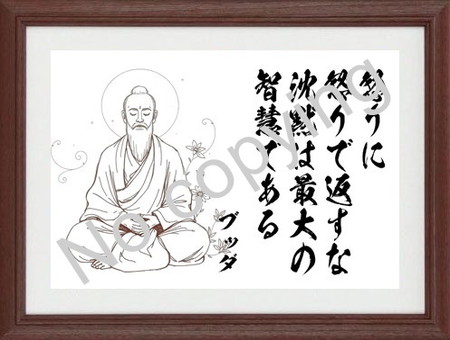 怒りに
怒りで返すな
沈黙は最大の
智慧である
ブッダ
No copying